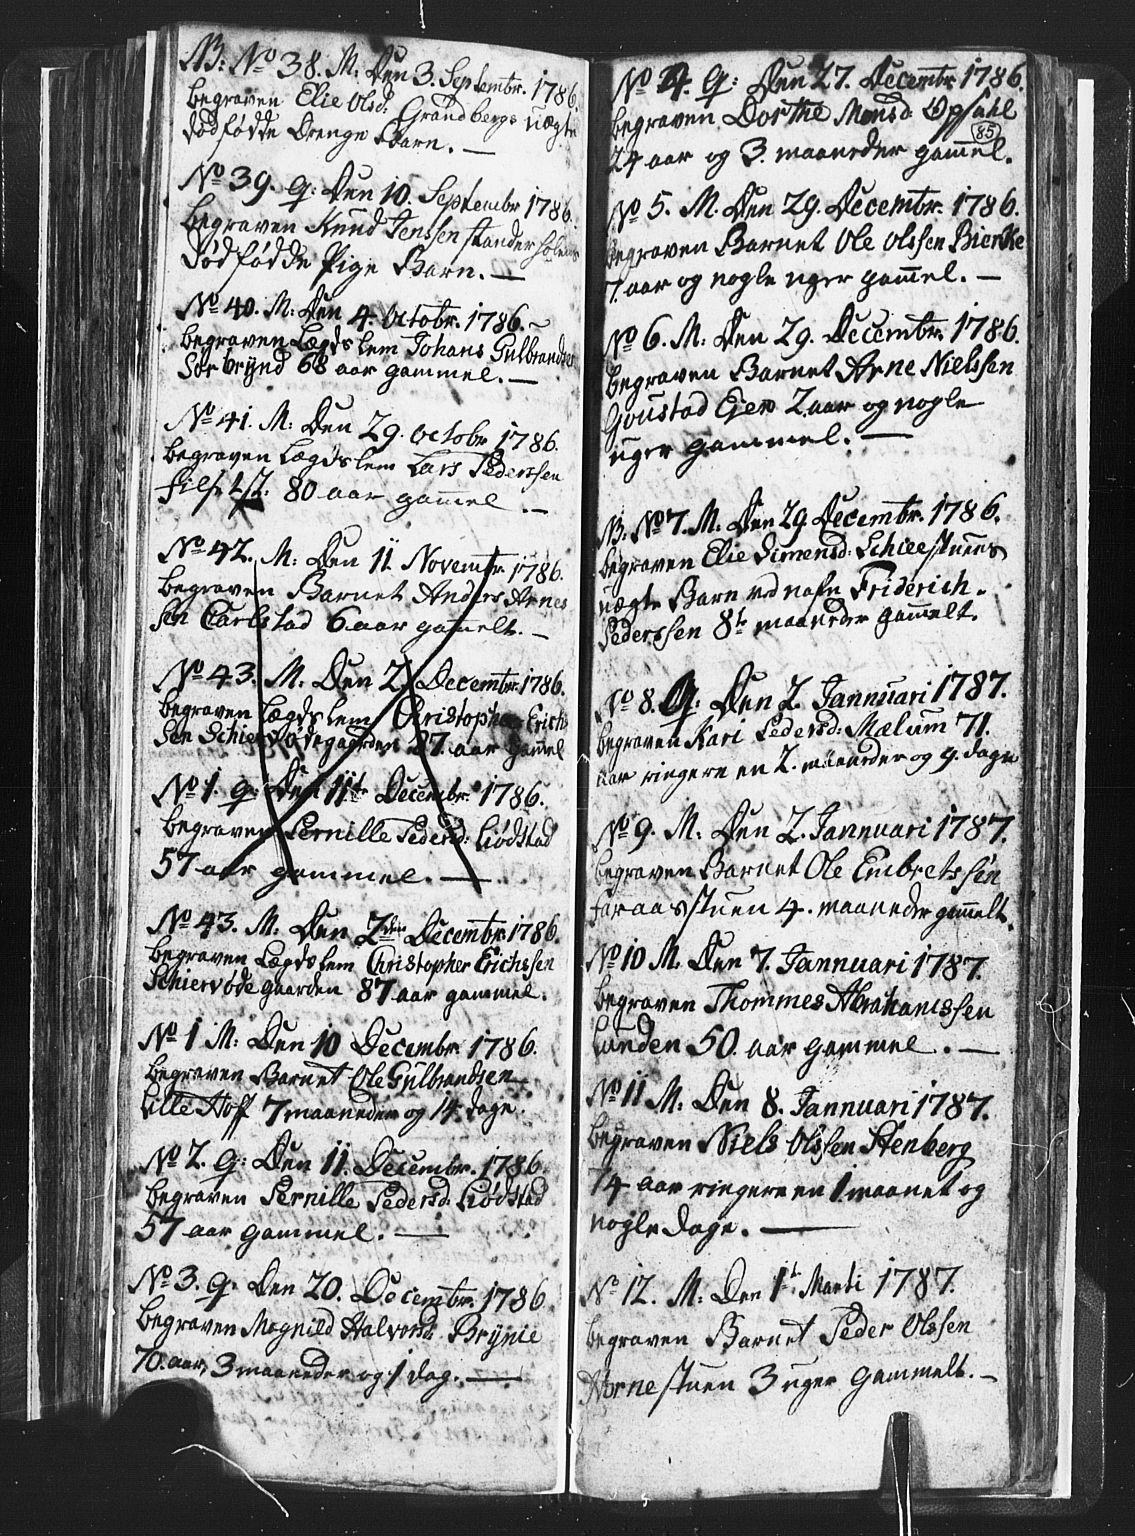 NB: No 38. M: Den 3. Septembr. 1786.
begraven Elie Olsd: Grandbergs uægte
dødfødde Drenge Barn. —
No 39. Q: Den 10. Septembr 1786.
begraven Knud Jenssen
dødfødde Pige Barn. —
No 40. M: Den 4. Octobr. 1786. ~
begraven Lægdslem Johans Gulbrandsen
Sørbrÿnd 68 aar gammel. —
No 41. M: Den 29. Octobr 1786.
begraven Lægdslem Lars Pederssen
80 aar gammel . —
No 42. M: Den 11. Novembr. 1786.
begraven Barnet Anders Arnes
sen Carlstad 6 aar gammelt. —
No 43. M: Den 2. Decembr. 1786.
begraven Lægdslem Christopher Erichs
sen Schierdødegaarden 87 aar gammel
No 1. Q: Den 11te Decembr. 1786.
begraven Pernille Pedersd: Liødstad
57 aar gammel. —
No 43. M: Den 2den Decembr. 1786.
begraven Lægdslem Christopher Erichssen
Schiervøde gaarden 87 aar gammel.
No 1 M: Den 10 Decembr. 1786.
begraven Barnet Ole Gulbrandsen
Lille Hoff 7 maaneder og 14 dage.
No 2. Q: Den 11. Decembr. 1786
begraven Pernille Pedersd: Liødstad
57 aar gammel. —
No 3. Q: Den 20. Decembr. 1786
begraven Magnild Halvorsd: Brÿnie
70. aar, 3 maaneder og 1 dag. —
No 4. Q: Den 27. Decembr. 1786.
begraven Dorthe Monsd: Opsahl
85
24 aar og 3. maaneder gammel.
No 5. M. Den 29. Decembr. 1786.
begraven Barnet Ole Olssen Bierke
7. aar og nogle uger gammel. —
No 6. M: Den 29. Decembr. 1786.
begraven Barnet Arne Nielssen
Goustad Eien 2. aar og nogle
uger gammel. —
NB: No 7. M: Den 29 Decembr. 1786.
begraven Elie Simensd: Schieestuens
uægte Barn ved nafn Friderich
Pederssen 8te maaneder gammelt.
No 8. Q: Den 2. Jannuari 1787.
begraven Kari Pedersd: Mælum 71.
aar ringere en 2. maaneder og 9. dage
No 9. M. Den 2. Jannuari 1787.
begraven Barnet Ole Embretssen
Faraasstuen 4. maaneder gammelt.
No 10 M. Den 7. Jannuari 1787.
begraven Thommes Abrahamssen
Lunden 50. aar gammel . —
No 11 M: Den 8. Jannuari 1787.
begraven Niels Olssen Stenberg
74 aar ringere en 1 maanet og
nogle dage. —
No 12. M: Den 1te Marti 1787.
begraven Barnet Peder Olssen
Hornestuen 3 uger gammelt. —